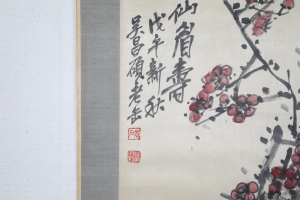 仙眉壽
戊午新秋
吳昌碩老缶